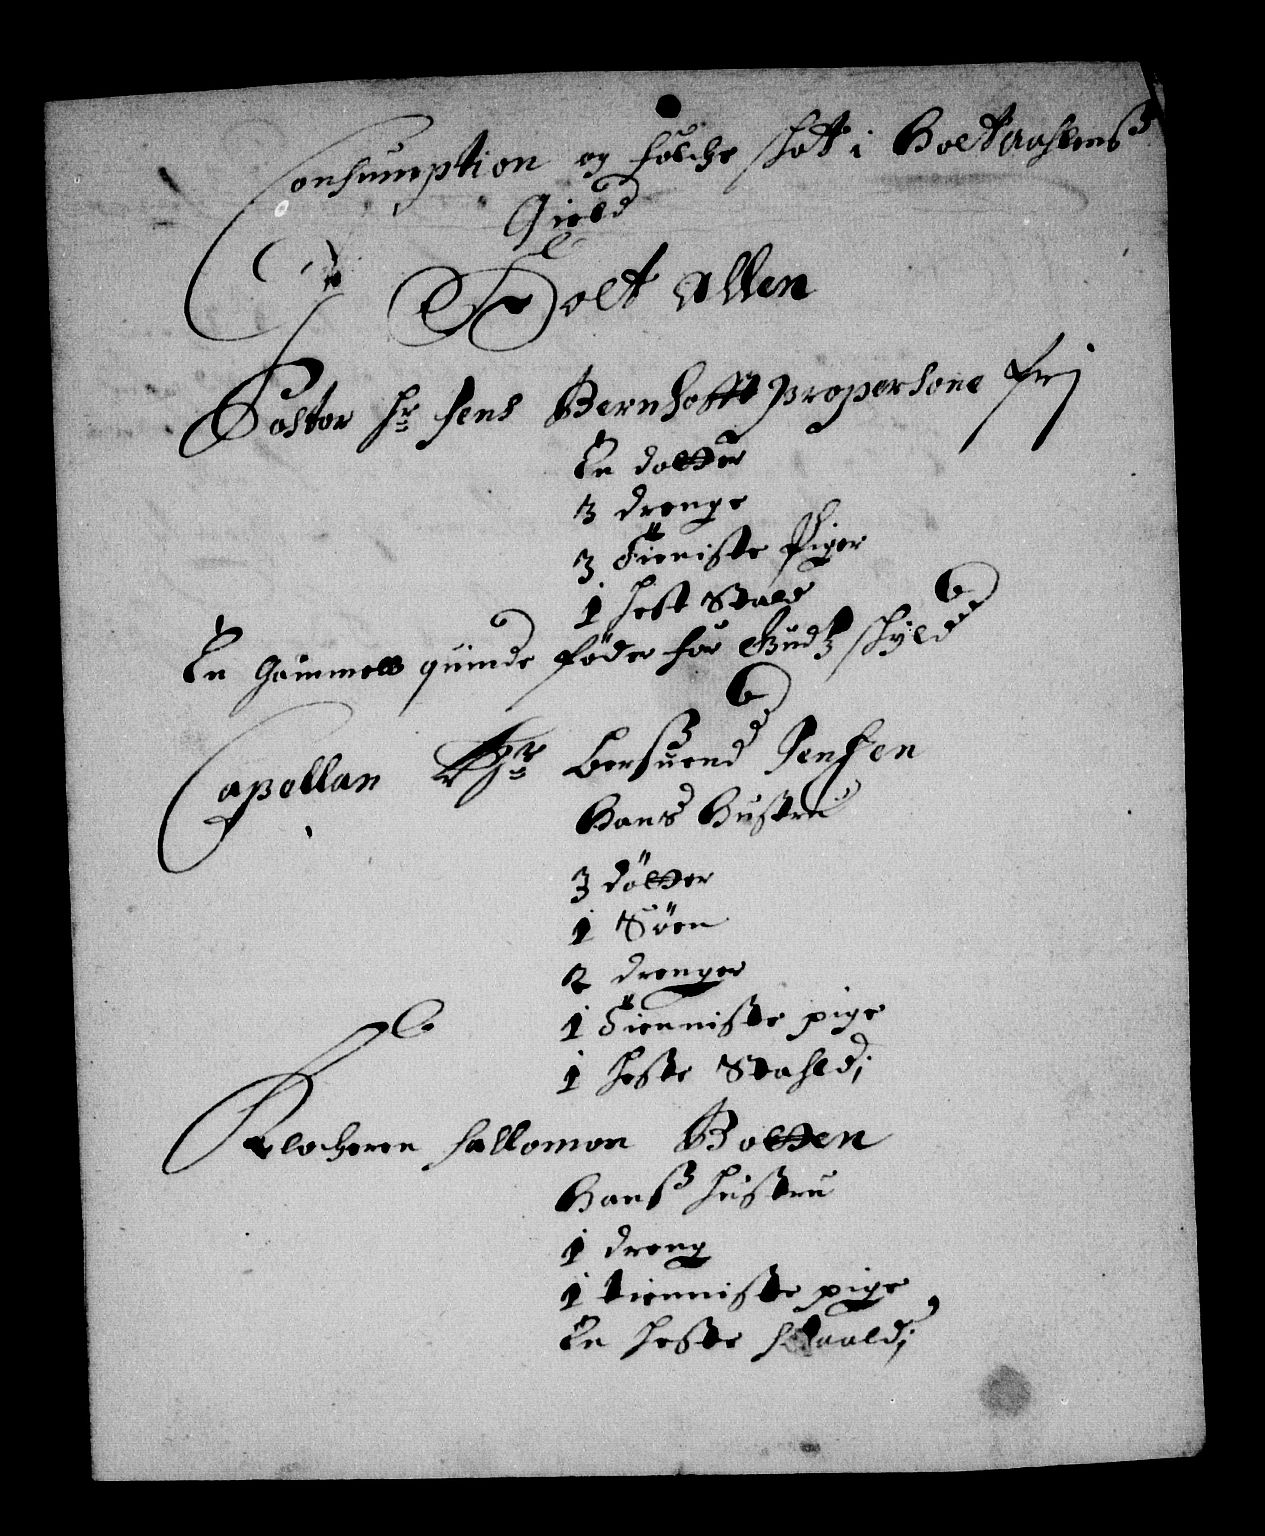 Consumption og folche skat i Holtaahlens
Gield
Holt Allen
Pastor Hr Jens Bernhofft propersone frj
En dotter
3 drenge
3 Tieniste Piger
1 hest Stald
En Gammell quinde føder for Gudtz skyld
Capellan Hr Bersuend Jensen
Hans Hustru
3 dötter
1 Söen
2 drenger
1 Tienniste pige
1 heste Stahld;
Klocheren Sallomon Botten
Hans hustru
1 dreng
1 tienniste pige
En heste staald;